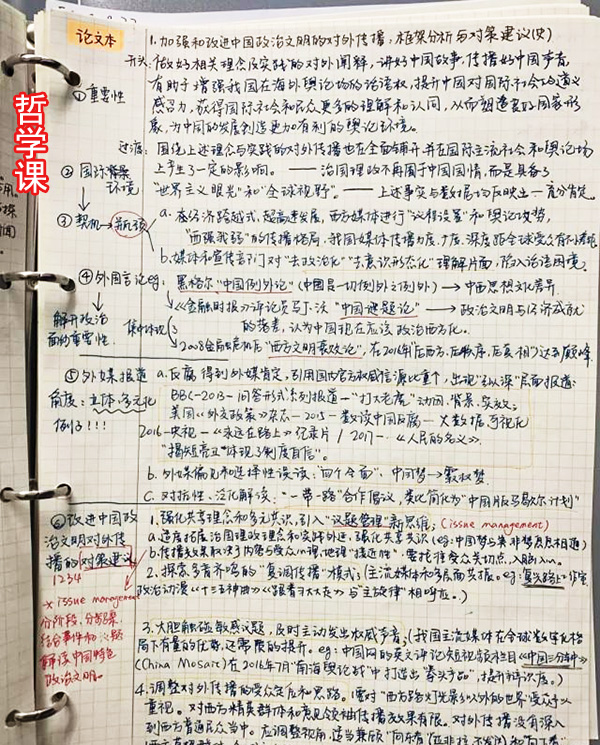 论文本
哲学课
1.加强和改进中国政治文明的对外传播:框架分析与对策建议(史)
开头:做好相关理念及实践的对外阐释,讲好中国故事,传播好中国声音,
①重要性
有助于增强我国在海外舆论场的话语权,提升中国对国际社会的道义
感召力,获得国际社会和民众更多的理解和认同,从而塑造良好国家形
象,为中国的发展创造更加有利的舆论环境。
过渡:围绕上述理念与实践的对外传播也在全面铺开,并在国际主流社会和舆论场
②国际背景
环境
上产生了一定的影响。——治国理政不再属于中国国情,而是具备了
"世界主义眼光"和"全球视野"。——上述事实与数据均反映出一
③契机→瓶颈
a.在经济跨越式、超高速发展,西方媒体进行"议程设置"和舆论攻势,
"西强我弱"的传播格局,我国媒体传播力度、广度、深度距全球受众有
b.媒体和宣传部门对"去政治化""去意识形态化"理解片面,陷入话语困境。
④外国言论eg:
黑格尔"中国例外论"(中国是一切例外之例外)→中西思想文化差异
《金融时报》评论员马丁沃"中国谜题论"→政治文明与经济成就
的悖差,认为中国现在应该政治西方化。
解开政治
面纱重要性.
集中体现
2008金融危机后"西方文明衰败论",在2016年"后西方、后秩序、后真相"达到顶峰
⑤外媒报道
角度:立体、多元化
例子!!!
a.反腐 得到外媒肯定,引用国内官方权威信源比重个,出现"引人深"层面报道:
BBC-2013-问答形式系列报道-"打大老虎"动因、背景、实效;
美国《外交政策》杂志-2015-数读中国反腐-大数据可视化
2016-央视-《永远在路上》纪录片/2017-《人民的名义》,
"揭短亮丑"体现了制度自信。
b.外媒偏见和选择性误读:"四个全面"、中国梦→霸权梦
C.对抗性、泛化解读:"一带一路"合作倡议,类比简化为"中国版马歇尔计划"
⑥改进中国政
治文明对外传
播的对策建议
1234
1.强化共享理念和多元共识,引入"议题管理"新思维;(issue management)
a.适度拓展治国理政理念和实践外延,强化共享共识(eg:中国梦与美、非梦是息息相通)
b.传播效果取决于内容与受众心理、地理"接近性",要找准受众关切点,入脑入心。
2.探索多音齐鸣的"复调传播"模式;(主流媒体和多层面共振。eg:复兴路上工作室
政治动漫《十三五神曲》《跟着习大大走》与主旋律"相呼应。)
*issue management
分阶段、分步骤、
结合事件和议题
解读中国特色
政治文明。
3.大胆触碰敏感议题,及时主动发出权威声音;(我国主流媒体在全球数字化格
局下有量的优势,还需质的提升。eg:中国网的英文评论短视频栏目《中国三分钟》
(China Mosaic)在2016年7月"南海舆论战"中打造出"拳头产品",提升辨识度。)
4.调整对外传播的受众定位和思路。(要对"西方路灯光影以外的世界"受众予以
重视。对西方精英群体和意见领袖传播效果有限。对外传播没有深入
到西方普通民众当中。应调整视角,适当兼顾